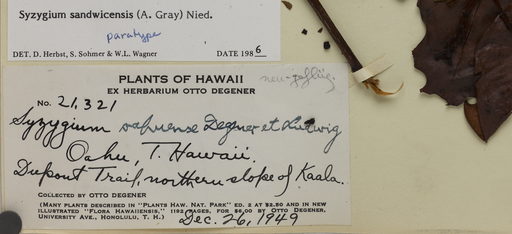 Syzygium sandwicensis (A. Gray) Nied.
paratype
DET. D. Herbst, S. Sohmer & W.L. Wagner DATE 1986
PLANTS OF HAWAII
EX HERBARIUM OTTO DEGENER
No. 21,321
Syzygium oahuense Degener et Ludwig
Oahu, T. Hawaii.
Dupont Trail, northern slope of Kaala.
COLLECTED BY OTTO DEGENER
(MANY PLANTS DESCRIBED IN "PLANTS HAW. NAT. PARK" ED. 2 AT $2.50 AND IN NEW
ILLUSTRATED "FLORA HAWAIIENSIS," 1192 PAGES, FOR $6.00 BY OTTO DEGENER,
UNIVERSITY AVE., HONOLULU, T. H.)
Dec. 26, 1949